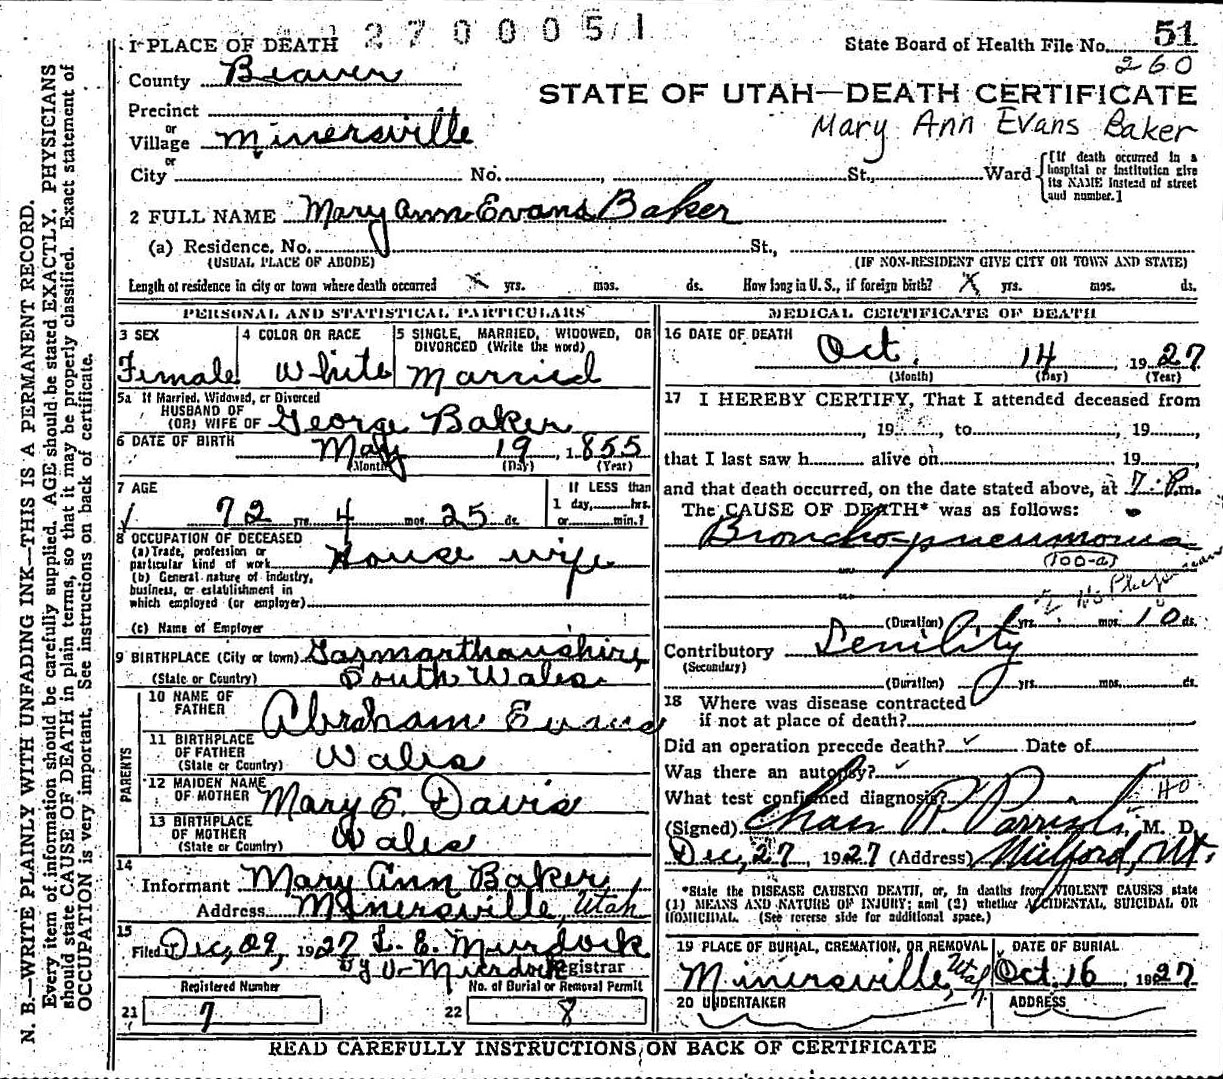 270005/1
1 PLACE OF DEATH
State Board of Health File No. 51
260
County Beaver
STATE OF UTAH—DEATH CERTIFICATE
Mary Ann Evans Baker
Precinct
or
Village Minersville
or
City No. , St., Ward
[If death occurred in a hospital or institution give its NAME instead of street and number.]
2 FULL NAME Mary Ann Evans Baker
(a) Residence. No. St.,
(USUAL PLACE OF ABODE) (IF NON-RESIDENT GIVE CITY OR TOWN AND STATE)
Length of residence in city or town where death occurred X yrs. mos. ds. How long in U. S., if foreign birth? X yrs. mos. ds.
PERSONAL AND STATISTICAL PARTICULARS
3 SEX Female
4 COLOR OR RACE White
5 SINGLE, MARRIED, WIDOWED, OR DIVORCED (Write the word) Married
5a If Married, Widowed, or Divorced
HUSBAND OF
(OR) WIFE OF George Baker
6 DATE OF BIRTH May 19, 1855
(Month) (Day) (Year)
7 AGE
72 yrs. 4 mos. 25 ds.
If LESS than 1 day, hrs. or min.?
8 OCCUPATION OF DECEASED
(a) Trade, profession or particular kind of work House wife
(b) General nature of industry, business, or establishment in which employed (or employer)
(c) Name of Employer
9 BIRTHPLACE (City or town) Garmarthanshire,
(State or Country) South Wales
PARENTS
10 NAME OF FATHER Abraham Evans
11 BIRTHPLACE OF FATHER (State or Country) Wales
12 MAIDEN NAME OF MOTHER Mary E. Davis
13 BIRTHPLACE OF MOTHER (State or Country) Wales
14
Informant Mary Ann Baker,
Address Minersville, Utah
15
Filed Dec, 29, 1927 L. E. Murdock
By V- Murdock Registrar
Registered Number No. of Burial or Removal Permit
21 7 22 8
MEDICAL CERTIFICATE OF DEATH
16 DATE OF DEATH
Oct. 14 1927
(Month) (Day) (Year)
17 I HEREBY CERTIFY, That I attended deceased from
, 19 , to , 19 ,
that I last saw h alive on , 19 ,
and that death occurred, on the date stated above, at 7 P.m.
The CAUSE OF DEATH* was as follows:
Broncho-pneumonia
100-a
No Physician
(Duration) yrs. mos. 10 ds.
Contributory Senility
(Secondary)
(Duration) yrs. mos. ds.
18 Where was disease contracted
if not at place of death?
Did an operation precede death? ✓ Date of
Was there an autopsy? ✓
What test confirmed diagnosis?
(Signed) Chas R. Parrish, M. D.
HO
Dec, 27 1927 (Address) Milford, Ut.
*State the DISEASE CAUSING DEATH, or, in deaths from VIOLENT CAUSES state
(1) MEANS AND NATURE OF INJURY; and (2) whether ACCIDENTAL, SUICIDAL OR
HOMICIDAL. (See reverse side for additional space.)
19 PLACE OF BURIAL, CREMATION, OR REMOVAL DATE OF BURIAL
Minersville, Utah Oct. 16 1927
20 UNDERTAKER ADDRESS
READ CAREFULLY INSTRUCTIONS ON BACK OF CERTIFICATE
N. B.—WRITE PLAINLY WITH UNFADING INK—THIS IS A PERMANENT RECORD.
Every item of information should be carefully supplied. AGE should be stated EXACTLY. PHYSICIANS
should state CAUSE OF DEATH in plain terms, so that it may be properly classified. Exact statement of
OCCUPATION is very important. See instructions on back of certificate.